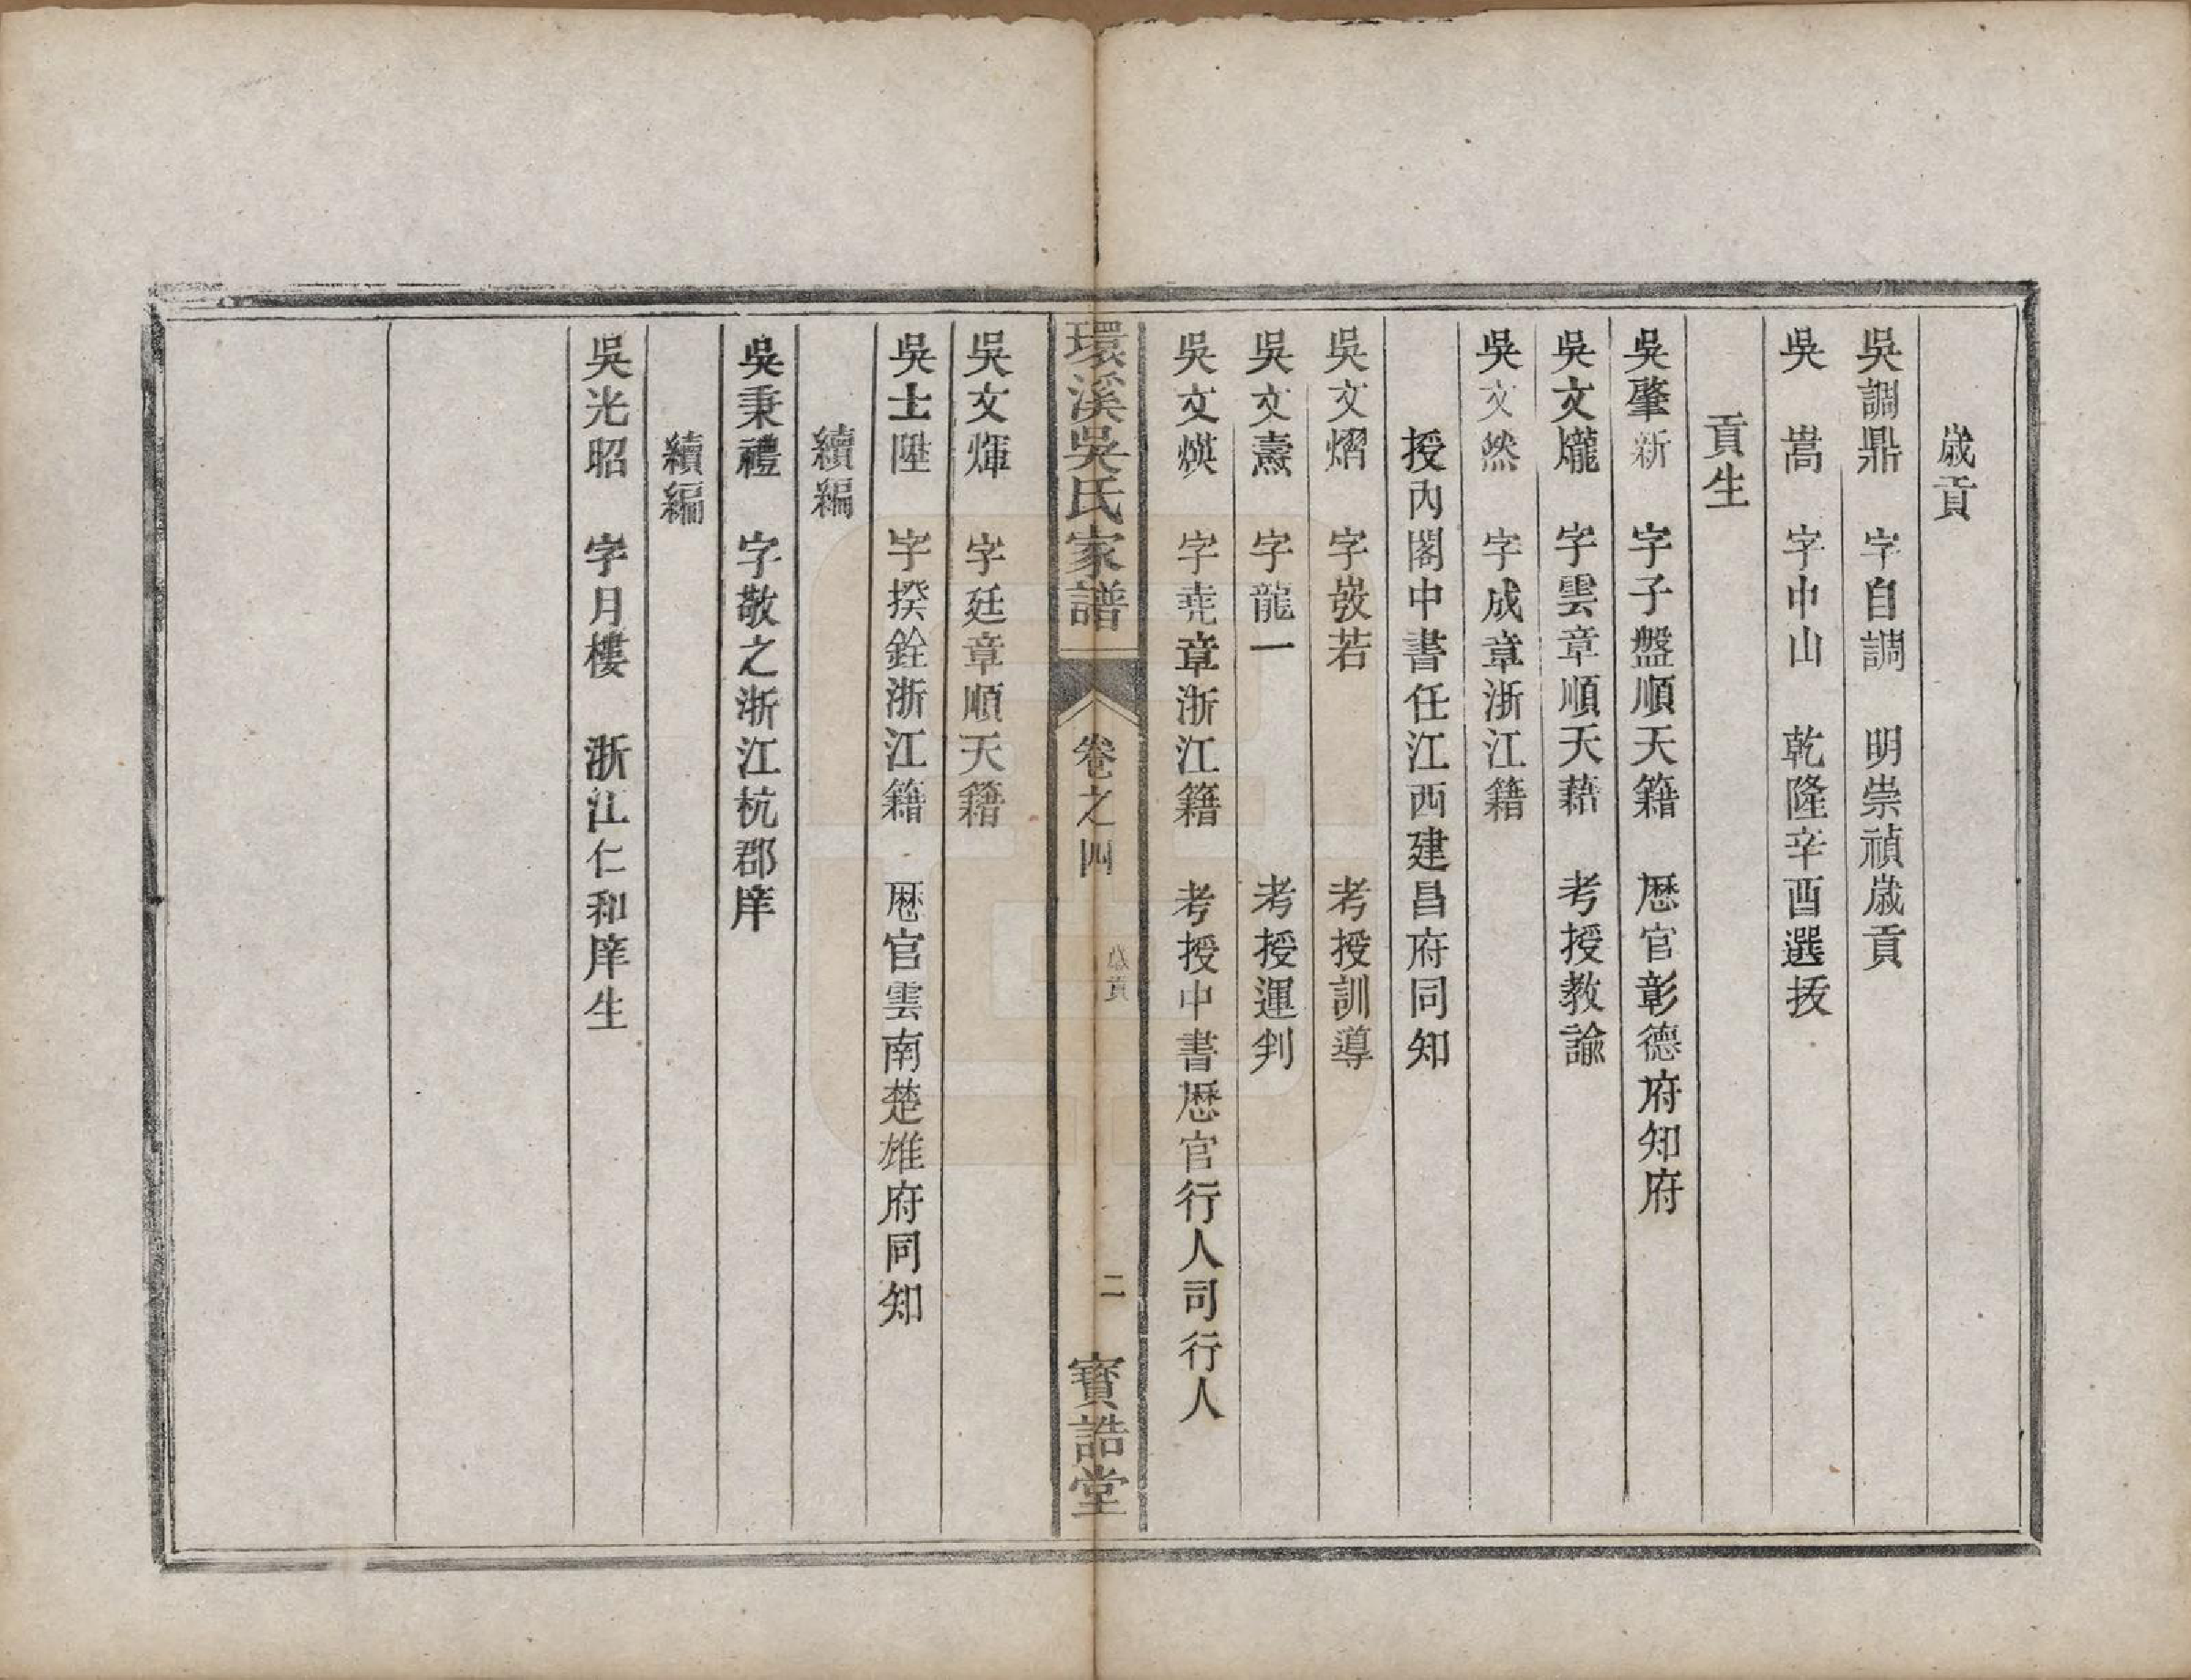 歲貢
吳調鼎　字自調　明崇禎歲貢
吳　嵩　字中山　乾隆辛酉選拔
貢生
吳肇新　字子盤順天籍　歷官彰德府知府
吳文爖　字雲章順天籍　考授教諭
吳文然　字成章浙江籍
授內閣中書任江西建昌府同知
吳文熠　字彀若　考授訓導
吳文燾　字龍一　考授運判
吳文煐　字堯章浙江籍　考授中書歷官行人司行人
環溪吳氏家譜　卷之四　貢　二　寶誥堂
吳文煇　字廷章順天籍
吳士陞　字揆銓浙江籍　歷官雲南楚雄府同知
續編
吳秉禮　字敬之浙江杭郡庠
續編
吳光昭　字月樓　浙江仁和庠生